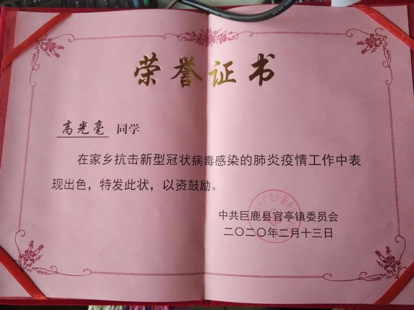 荣誉证书
高光亮 同学
在家乡抗击新型冠状病毒感染的肺炎疫情工作中表
现出色，特发此状，以资鼓励。
中共巨鹿县官亭镇委员会
二〇二〇年二月十三日